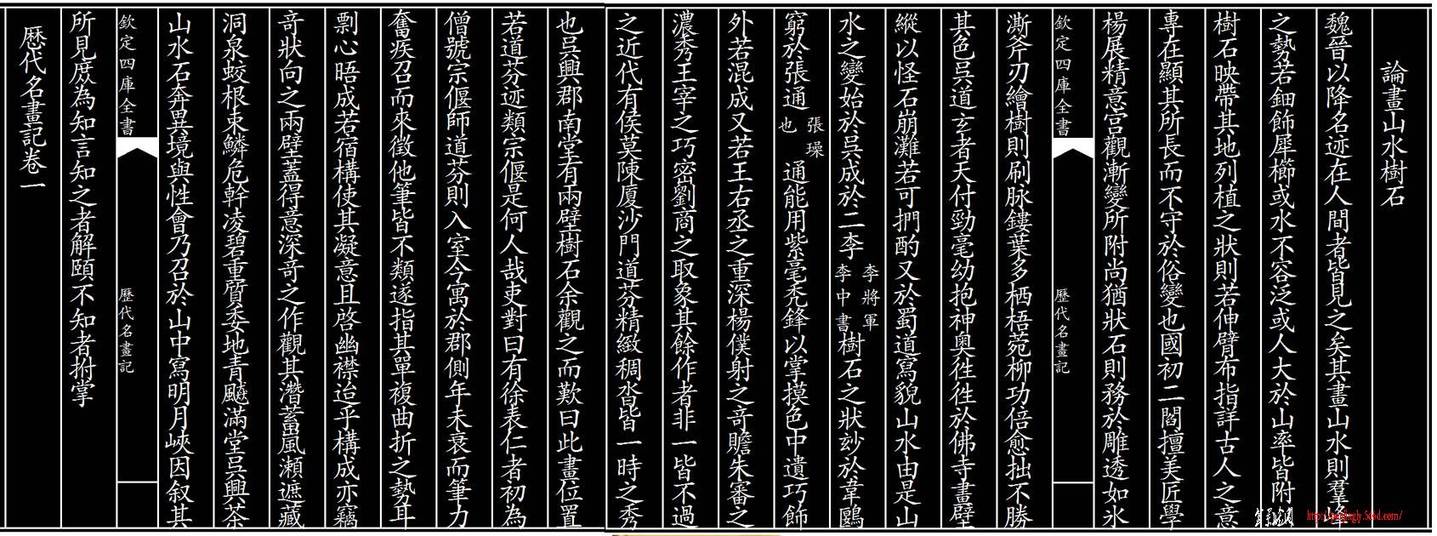 論畫山水樹石
魏晉以降名迹在人間者皆見之矣其畫山水則羣峰
之勢若鈿飾犀櫛或水不容泛或人大於山率皆附
樹石映帶其地列植之狀則若伸臂布指詳古人之意
專在顯其所長而不守於俗變也國初二閻擅美匠學
楊展精意宮觀漸變所附尚猶狀石則務於雕透如氷
欽定四庫全書
歷代名畫記
澌斧刃繪樹則刷脉鏤葉多栖梧菀柳功倍愈拙不勝
其色吳道玄者天付勁毫幼抱神奥徃徃於佛寺畫壁
縱以怪石崩灘若可捫酌又於蜀道寫貌山水由是山
水之變始於吳成於二李李將軍李中書樹石之狀玅於韋鶠
窮於張通張璪也通能用紫毫秃鋒以掌摸色中遺巧飾
外若混成又若王右丞之重深楊僕射之竒贍朱審之
濃秀王宰之巧密劉商之取象其餘作者非一皆不過
之近代有侯莫陳厦沙門道芬精緻稠沓皆一時之秀
也吳興郡南堂有兩壁樹石余觀之而歎曰此畫位置
若道芬迹類宗偃是何人哉吏對曰有徐表仁者初為
僧號宗偃師道芬則入室今寓於郡側年未衰而筆力
奮疾召而來徵他筆皆不類遂指其單複曲折之勢耳
剽心晤成若宿構使其凝意且啓幽襟迨乎構成亦竊
竒狀向之兩壁蓋得意深竒之作觀其潛蓄嵐瀬遮藏
洞泉蛟根束鱗危幹凌碧重質委地青飈滿堂吳興茶
山水石奔異境與性會乃召於山中寫明月峽因叙其
欽定四庫全書
歷代名畫記
所見庶為知言知之者解頤不知者拊掌
歷代名畫記卷一